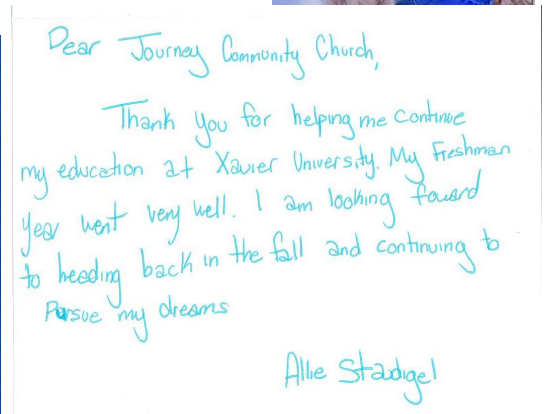 Dear Journey Community Church,
Thank you for helping me continue
my education at Xavier University. My Freshman
year went very well. I am looking foward
to heading back in the fall and continuing to
Pursue my dreams
Allie Staudigel